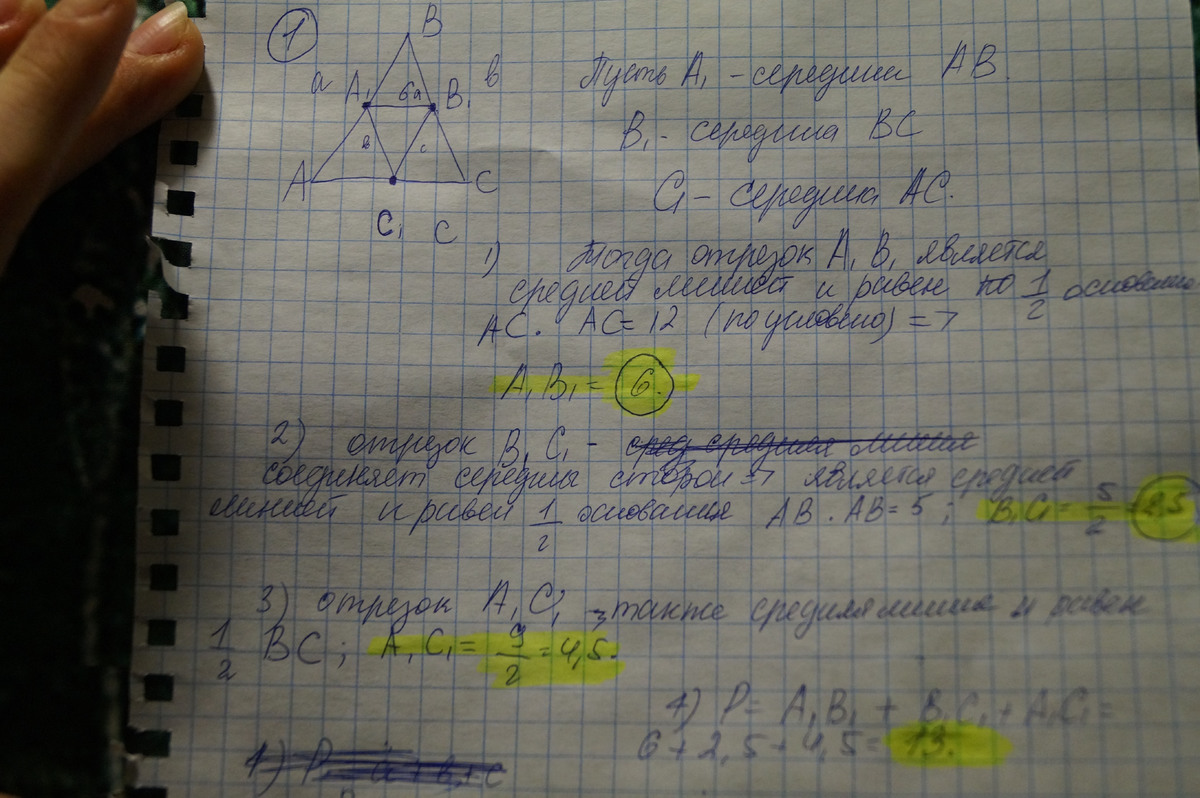 1
B
а A₁ 6а B₁ в
в с
A C
C₁ C
Пусть A₁ - середина AB.
B₁ - середина BC
C₁ - середина AC.
1) Тогда отрезок A₁B₁ является
средней линией и равен по 1/2 основанию
AC. AC = 12 (по условию) =>
A₁B₁ = 6.
2) отрезок B₁C₁ - сред средняя линия
соединяет середины сторон => является средней
линией и равен 1/2 основания AB. AB = 5; B₁C₁ = 5/2 = 2,5
3) отрезок A₁C₁ также средняя линия и равен
1/2 BC; A₁C₁ = 9/2 = 4,5.
4) P = A₁B₁ + B₁C₁ + A₁C₁ =
6 + 2,5 + 4,5 = 13.
4) P a + b + c